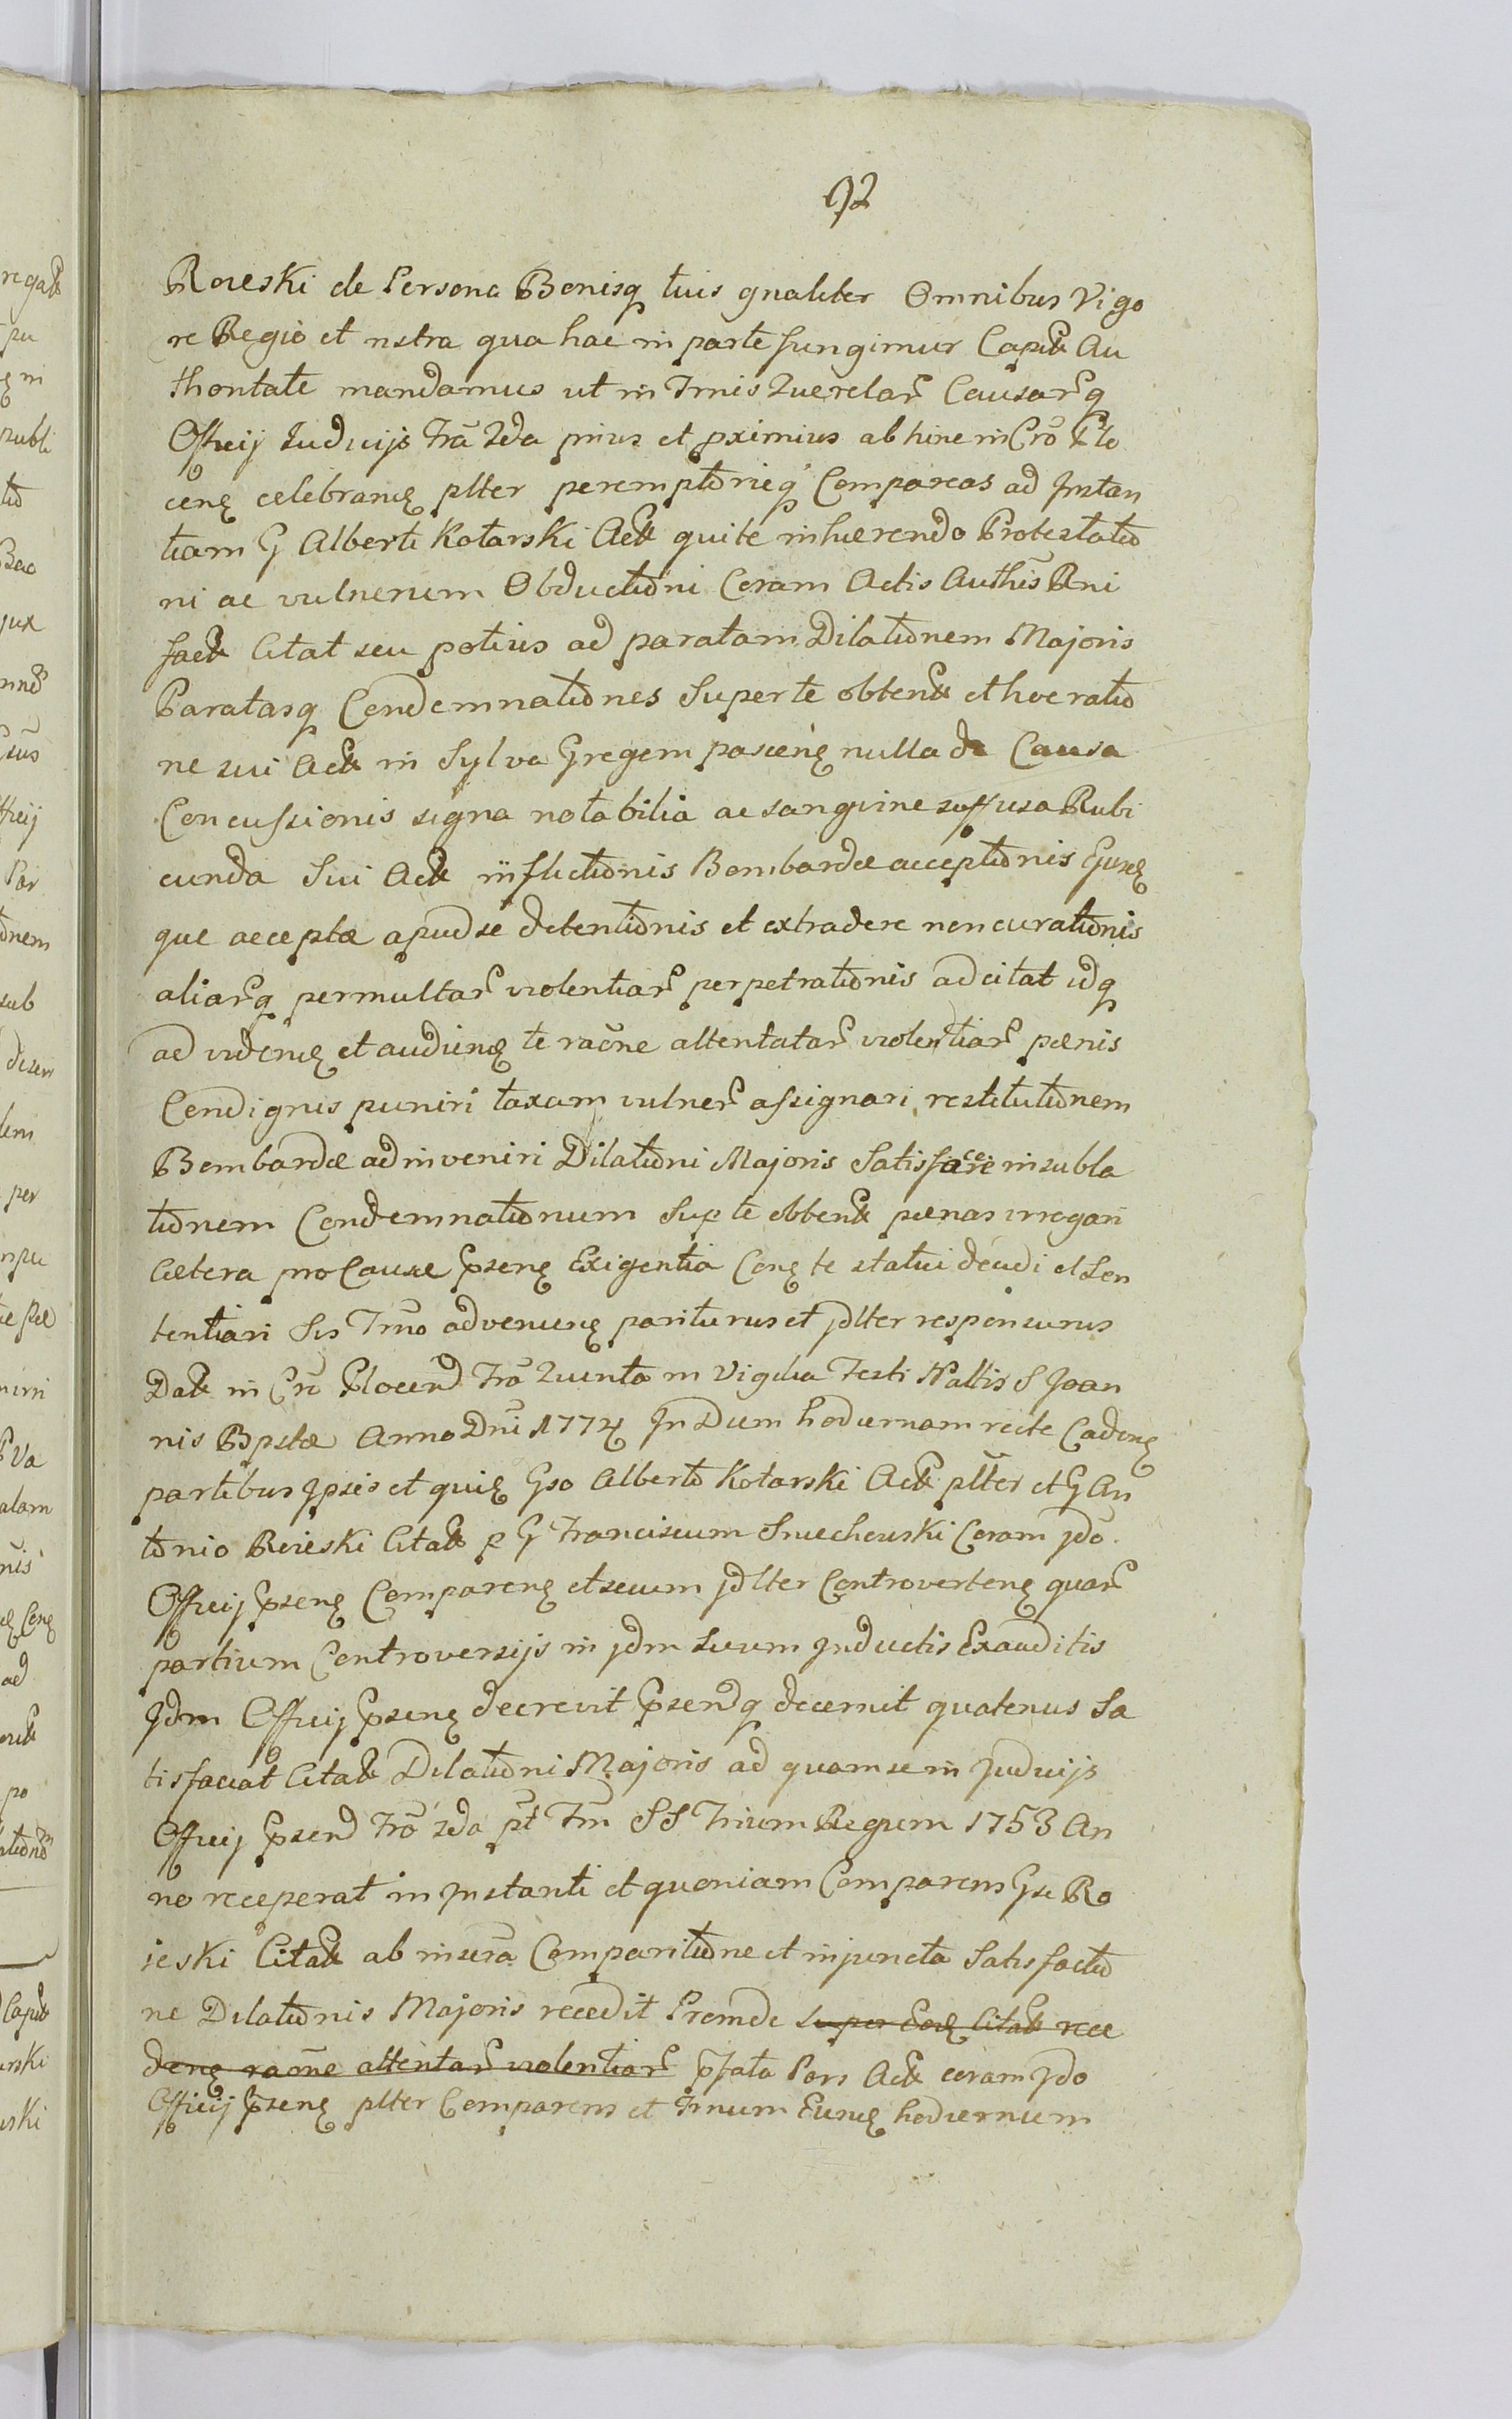 92
Roieski de Persona Bonisq tuis gnaliter Omnibus Vigo
re Regio et nstra qua hac in parte fungimur Capit Au
thoritate mandamus ut in Tmis Querelar Causarq
Officij Judicijs Fra 2da prius et pximius ab hinc in Cro Plo
cen celebran plter peremptorieq Compareas ad Instan
tiam G Alberti Kotarski Act qui te inhaerendo Protestatio
ni ac vulnerum Obductioni Coram Actis Authis Rni
fact Citat seu potius ad paratam Dilationem Majoris
Paratasq Condemnationes Super te obtent et hoc ratio
ne sui Act in Sylva Gregem pascen nulla de Causa
Concussionis signa notabilia ac sanguine suffusa Rubi
cunda Sui Act inflictionis Bombardae acceptionis Ejusd
que acceptae apud se detentionis et extradere non curationis
aliarq permultar violentiar perpetrationis adcitat idq
ad viden et audien te raone attentatar violentiar paenis
Condignis puniri taxam vulner assignari restitutionem
Bombardae adinveniri Dilationi Majoris Satisfaceri in subla
tionem Condemnationum Sup te obtent paenas irrogari
Caetera pro Causae Psen Exigentia Con te statui decidi et Sen
tentiari Sis Tmo advenien pariturus et jdlter responsurus
Dat in Cro Plocen Fra Quinta in Vigilia Festi Natlis S Joan
nis Bpstae Anno Dni 1774 In Diem hodiernam recte Caden
partibus Ipsis et qui Gso Alberto Kotarski Act plter et G An
tonio Roieski Citat p G Franciscum Smiechowski Coram jdo
Officij Psen Comparen et secum jdlter Controverten quar
partium Controversijs in jdm Suum Inductis Exauditis
Jdm Officij Psen decrevit Psendq decernit quatenus Sa
tisfaciat Citat Dilationi Majoris ad quam se in Judicijs
Officij Psend Fra 2da pt Fm SS Trium Regum 1753 An
no receperat in Instanti et quoniam Comparens Gse Ro
ieski Citat ab inscra Comparitione et injuncta Satisfactio
ne Dilationis Majoris recedit Proinde super Eod Citat rece
den raone attentar violentiar Pfata Pars Act coram jdo
Officij Psen plter Comparens et Tmum Eund hodiernum